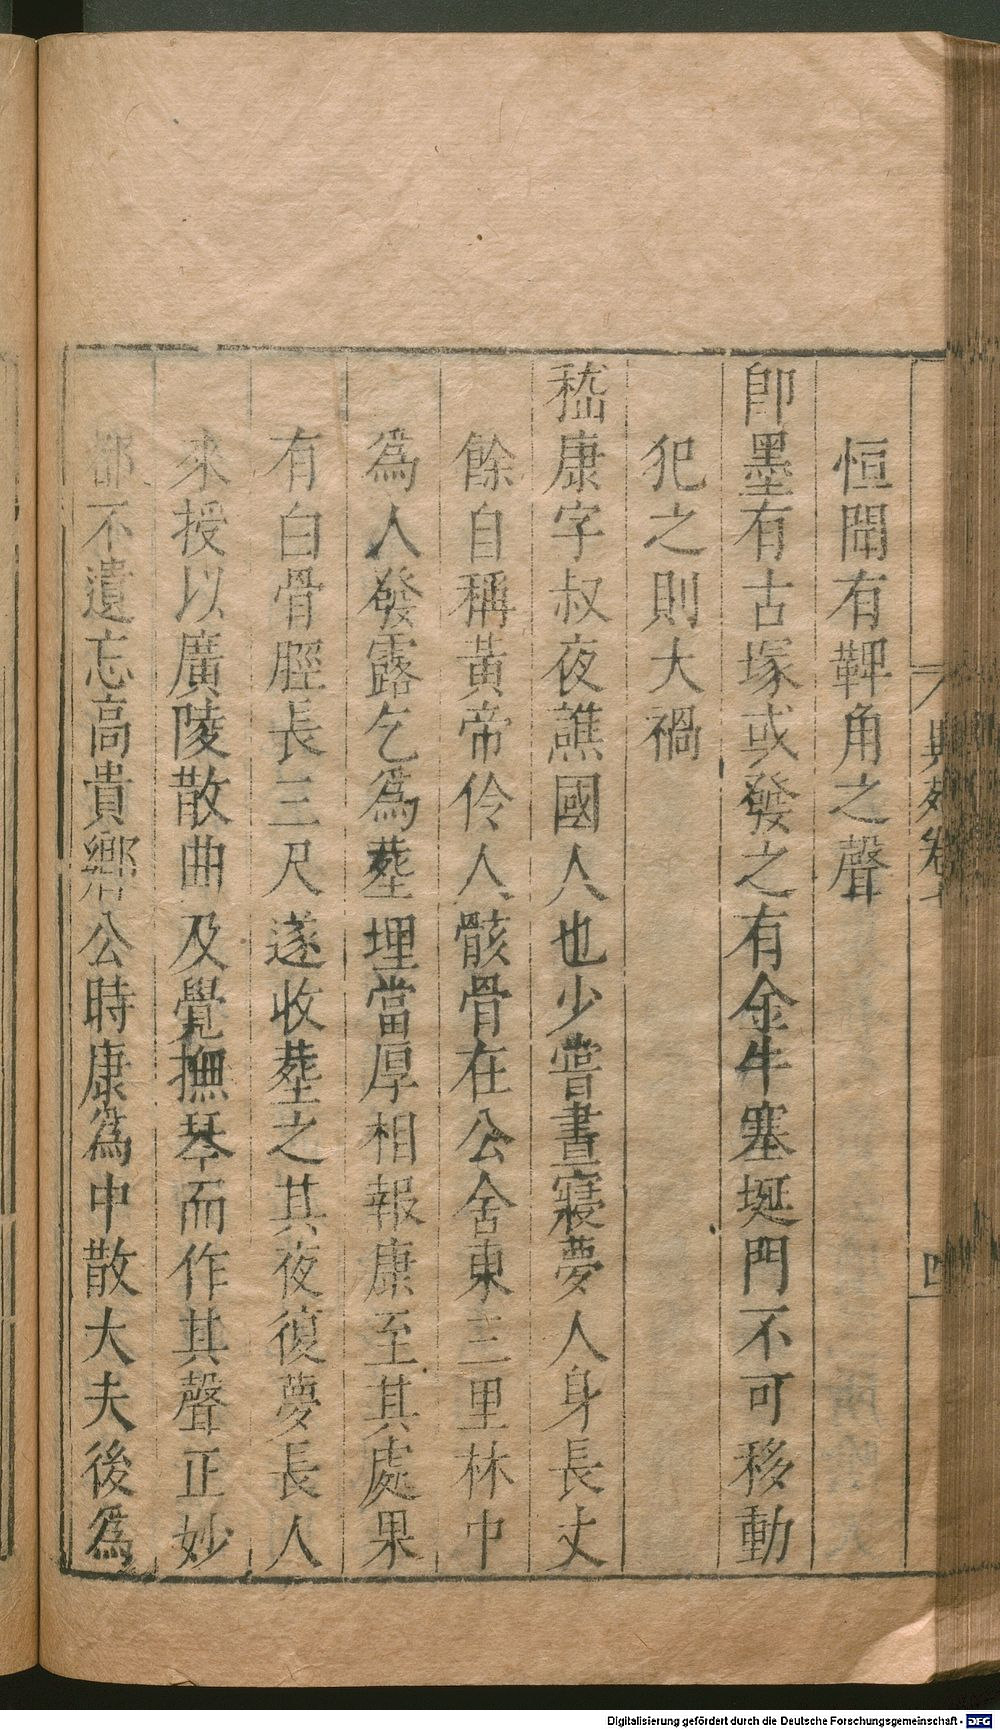 恒聞有鞞角之聲
卽墨有古塚或發之有金牛塞埏門不可移動
犯之則大禍
嵇康字叔夜譙國人也少嘗晝寢夢人身長丈
餘自稱黃帝伶人骸骨在公舍東三里林中
爲人發露乞爲塟埋當厚相報康至其處果
有白骨脛長三尺遂收塟之其夜復夢長人
來授以廣陵散曲及覺撫琴而作其聲正妙
都不遺忘高貴鄉公時康爲中散大夫後爲
異苑卷
四
Digitalisierung gefördert durch die Deutsche Forschungsgemeinschaft - DFG